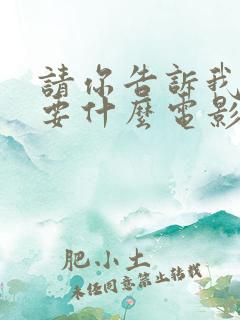 請你告訴我
要什麼電影
肥小土
未經同意禁止转载